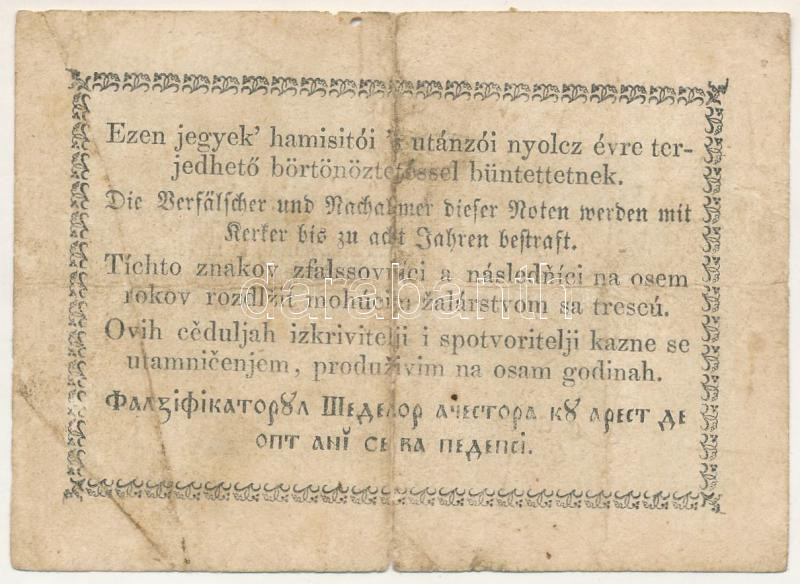 Ezen jegyek' hamisitói 's utánzói nyolcz évre ter-
jedhető börtönöztetéssel büntettetnek.
Die Verfälscher und Nachahmer dieser Noten werden mit
Kerker bis zu acht Jahren bestraft.
Tíchto znakov zfalssovňíci a následňíci na osem
rokov rozdlžiť mohúcim žalárstvom sa trescú.
Ovih cěduljah izkrivitelji i spotvoritelji kazne se
utamničenjem, produživim na osam godinah.
Фалꙁіфікаторꙋл Шеделор ачестора кꙋ арест де
опт анĭ се ва педепсі.
darabanth